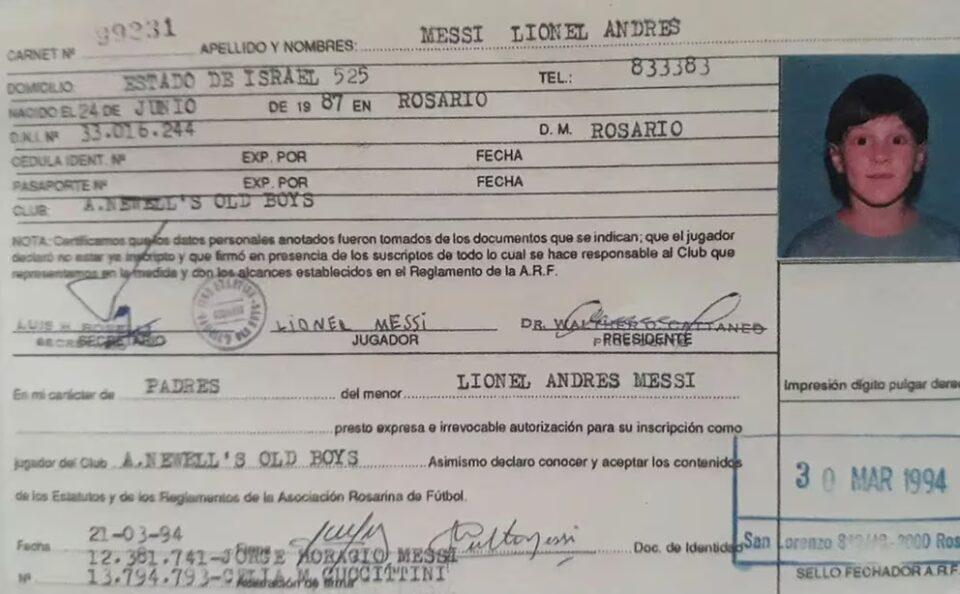 CARNET Nº 99231 APELLIDO Y NOMBRES: MESSI LIONEL ANDRES
DOMICILIO: ESTADO DE ISRAEL 525 TEL.: 833383
NACIDO EL 24 DE JUNIO DE 19 87 EN ROSARIO
D.N.I. Nº 33.016.244 D. M. ROSARIO
CEDULA IDENT. Nº EXP. POR FECHA
PASAPORTE Nº EXP. POR FECHA
CLUB: A.NEWELL'S OLD BOYS
NOTA: Certificamos que los datos personales anotados fueron tomados de los documentos que se indican; que el jugador
declaró no estar ya inscripto y que firmó en presencia de los suscriptos de todo lo cual se hace responsable al Club que
representamos en la medida y con los alcances establecidos en el Reglamento de la A.R.F.
LUIS H. LIONEL MESSI DR. WALTHER D. CATTANEO
SECRETARIO JUGADOR PRESIDENTE
En mi carácter de PADRES del menor LIONEL ANDRES MESSI
presto expresa e irrevocable autorización para su inscripción como
jugador del Club A.NEWELL'S OLD BOYS Asimismo declaro conocer y aceptar los contenidos
de los Estatutos y de los Reglamentos de la Asociación Rosarina de Fútbol.
Fecha 21-03-94 Doc. de Identidad
12.381.741-JORGE HORACIO MESSI
Nº 13.794.793-CELIA M. CUCCITTINI
Impresión dígito pulgar dere
30 MAR 1994
San Lorenzo 2000 Ros
SELLO FECHADOR A.R.F.